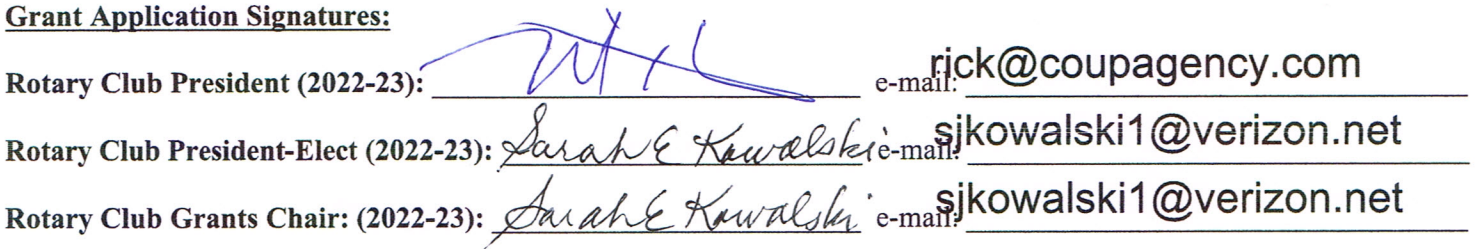 Grant Application Signatures:
Rotary Club President (2022-23): e-mail: rick@coupagency.com
Rotary Club President-Elect (2022-23): Sarah E Kowalski e-mail: sjkowalski1@verizon.net
Rotary Club Grants Chair: (2022-23): Sarah E Kowalski e-mail: sjkowalski1@verizon.net